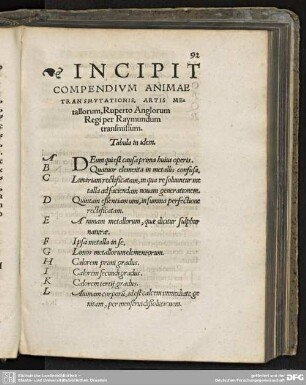 92
INCIPIT
COMPENDIVM ANIMAE
TRANSMVTATIONIS, ARTIS ME-
tallorum, Ruperto Anglorum
Regi per Raymundum
transmissum.
Tabula in idem.
A DEum qui est causa prima huius operis.
B Quatuor elementa in metallis confusa,
C Lunariam rectificatam, in qua resoluuntur me
talla ad faciendam nouam generationem.
D Quintam essentiam uini, in summa perfectione
rectificatam.
E Animam metallorum, quæ dicitur sulphur
naturæ.
F Ipsa metalla in se.
G Limos metallorum elementorum.
H Calorem primi gradus.
I Calorem secundi gradus.
K Calorem tertij gradus.
L Animam corporis, id est calcem immediate ge
nitam, per menstrua dissolutiuum.
Sächsische Landesbibliothek -
Staats- und Universitätsbibliothek Dresden
gefördert von der
DFG